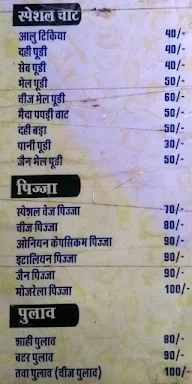 स्पेशल चाट
आलु टिकिया 40/-
दही पूडी 40/-
सेव पूडी 40/-
भेल पूडी 50/-
चीज भेल पूडी 60/-
मैदा पपड़ी चाट 50/-
दही बड़ा 50/-
पानी पूडी 30/-
जैन भेल पूडी 50/-
पिज्जा
स्पेशल वेज पिज्जा 70/-
चीज पिज्जा 80/-
ओनियन केपसिकम पिज्जा 90/-
इटालियन पिज्जा 90/-
जैन पिज्जा 90/-
मोजरेला पिज्जा 100/-
पुलाव
शाही पुलाव 80/-
बटर पुलाव 90/-
तवा पुलाव (चीज पुलाव) 100/-